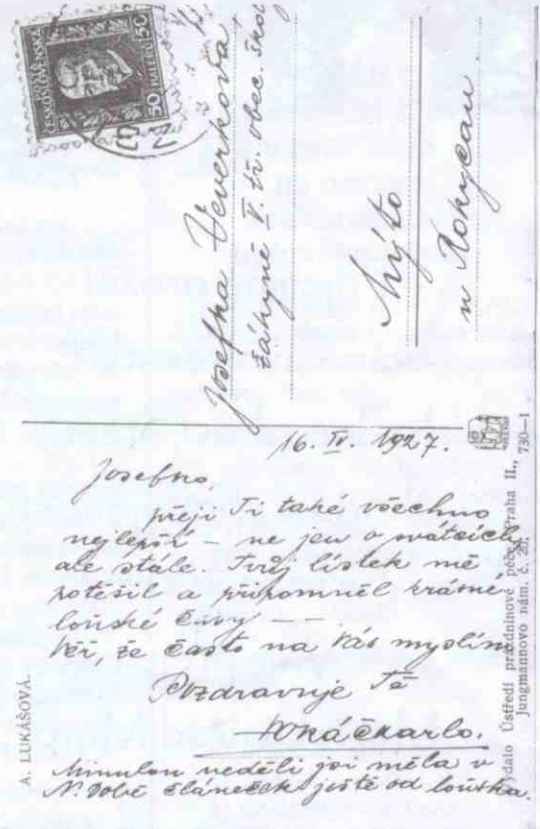 POŠTA
ČESKOSLOVENSKÁ
50 HALÉŘŮ 50
Josefka Veverková
žákyně V. tř. obec. škol
Mýto
u Rokycan
16. IV. 1927.
Josefko,
přeji Ti také všechno
nejlepší – ne jen o svátcích,
ale stále. Tvůj lístek mě
potěšil a připomněl krásné
loňské časy — —
Věř, že často na Vás myslím.
Pozdravuje Tě
Minulou neděli jsi měla v
N. Době článeček ještě od loňska.
A. LUKÁŠOVÁ.
Vydalo Ústředí prázdninové péče, Praha II.,
Jungmannovo nám. č. 730—1